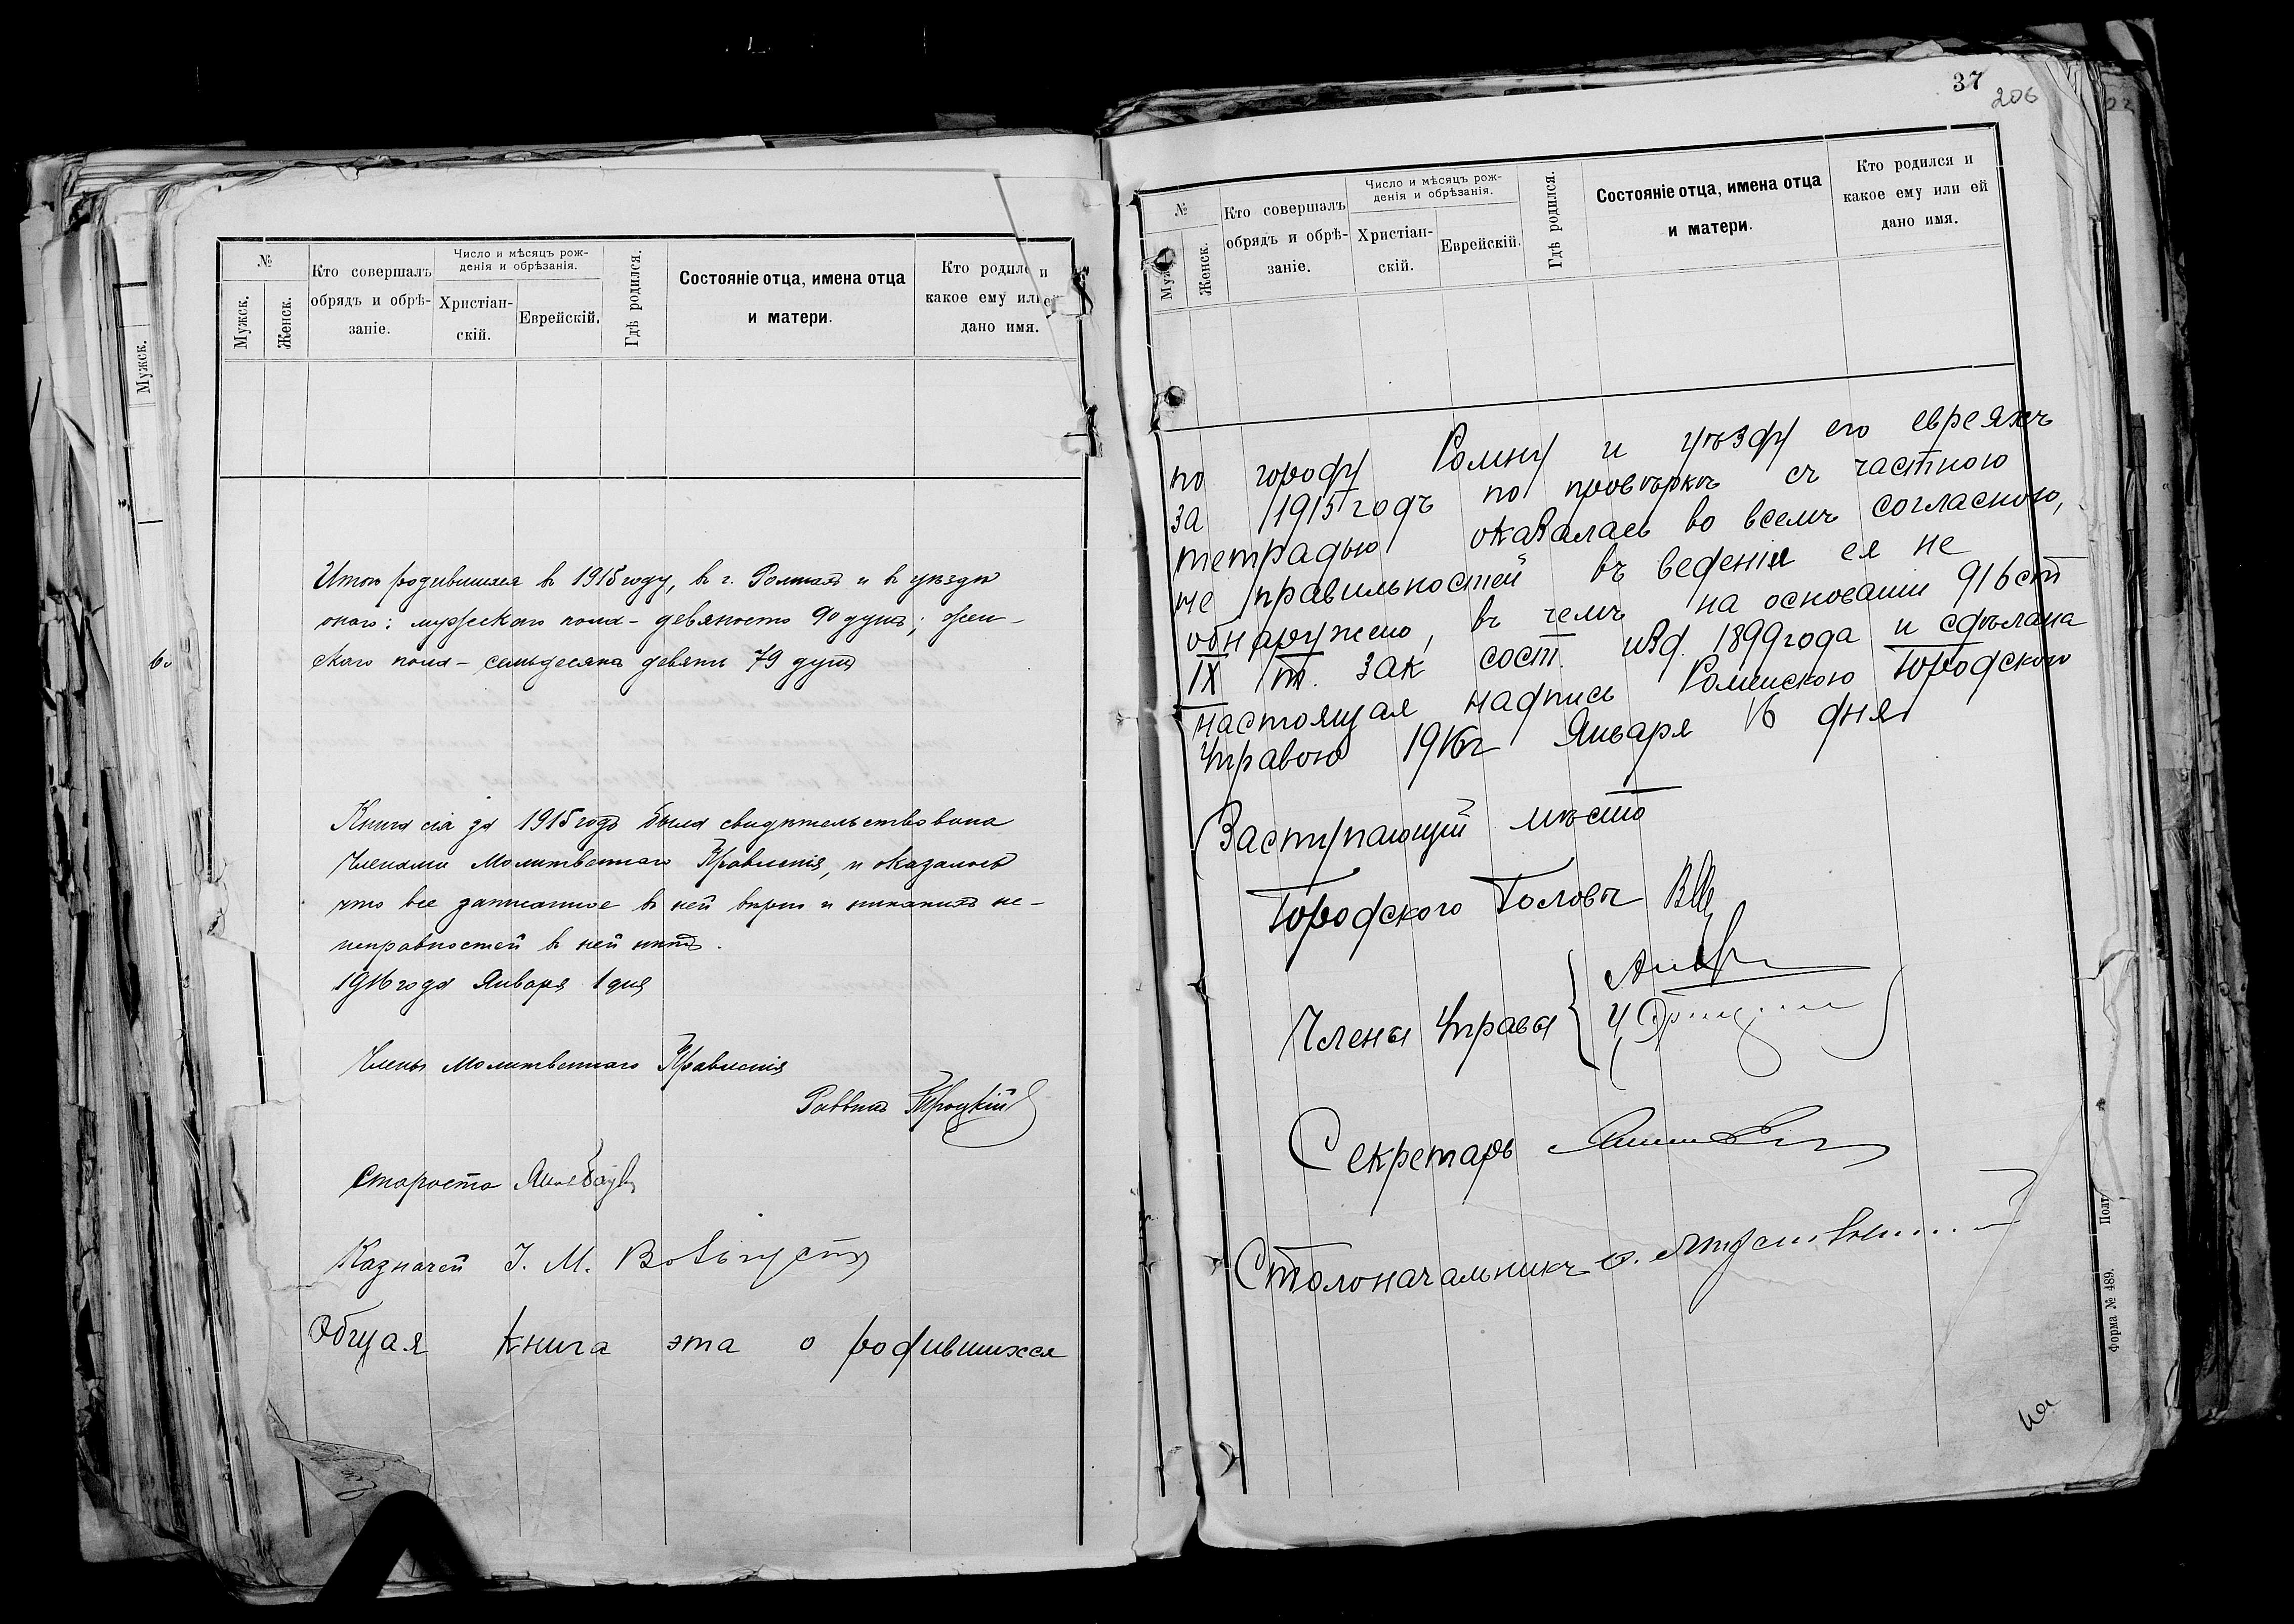 №
Мужск.
Женск.
Кто совершалъ
обрядъ и обрѣ-
заніе.
Число и мѣсяцъ рож-
денія и обрѣзанія.
Христіан-
скій.
Еврейскій.
Гдѣ родился.
Состояніе отца, имена отца
и матери.
Кто родился и
какое ему или ей
дано имя.
Мужск.
Итого родившихся въ 1915 году, въ г. Ромнахъ и въ уѣздѣ
онаго: мужского пола - девяносто 90 душъ; жен-
ского пола - семьдесятъ девять 79 душъ
Книга сія за 1915 годъ была свидѣтельствована
Членами Молитвеннаго Правленія, и оказалось
что все записанное въ ней вѣрно и никакихъ не-
исправностей въ ней нѣтъ.
1916 года Января 1 дня
Члены Молитвеннаго Правленія
Раввинъ Троцкій
Староста
Казначей І. М.
Общая книга эта о родившихся
37
206
№
Мужск.
Женск.
Кто совершалъ
обрядъ и обрѣ-
заніе.
Число и мѣсяцъ рож-
денія и обрѣзанія.
Христіан-
скій.
Еврейскій.
Гдѣ родился.
Состояніе отца, имена отца
и матери.
Кто родился и
какое ему или ей
дано имя.
по городу Ромну и уѣзду его евреяхъ
за 1915 годъ по провѣркѣ съ частною
тетрадью оказалась во всемъ согласною,
не правильностей въ веденіи ея не
обнаружено, въ чемъ на основаніи 916 ст
IX т. Зак сост. изд. 1899 года и сдѣлана
настоящая надпись Роменскою Городскою
Управою 1916 г Января 16 дня
Заступающій мѣсто
Городского Головы
Члены Управы
Секретарь
Столоначальникъ
Форма № 489.
Полт